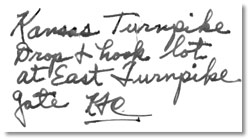 Kansas Turnpike
Drop & hook lot
at East Turnpike
gate